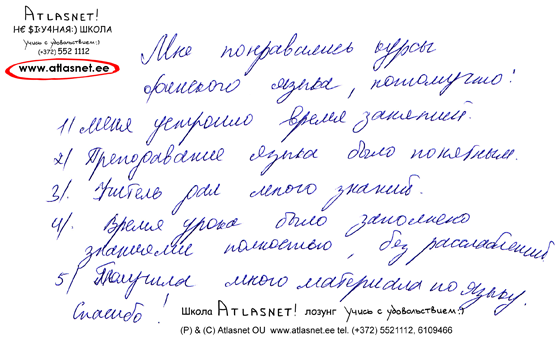 ATLASNET!
НЄ $IУ4НАЯ:) ШКОЛА
Учись с удовольствием:)
(+372) 552 1112
www.atlasnet.ee
Мне понравились курсы
финского языка, потомучто:
1/ Меня устроило время занятий.
2/ Преподавание языка было понятным.
3/. Учитель дал много знаний.
4/. Время урока было заполнено
знаниями полностью, без расслаблений
5/ Получила много материала по языку.
Спасибо!
Школа ATLASNET! лозунг Учись с удовольствием:)
(P) & (C) Atlasnet OU www.atlasnet.ee tel. (+372) 5521112, 6109466